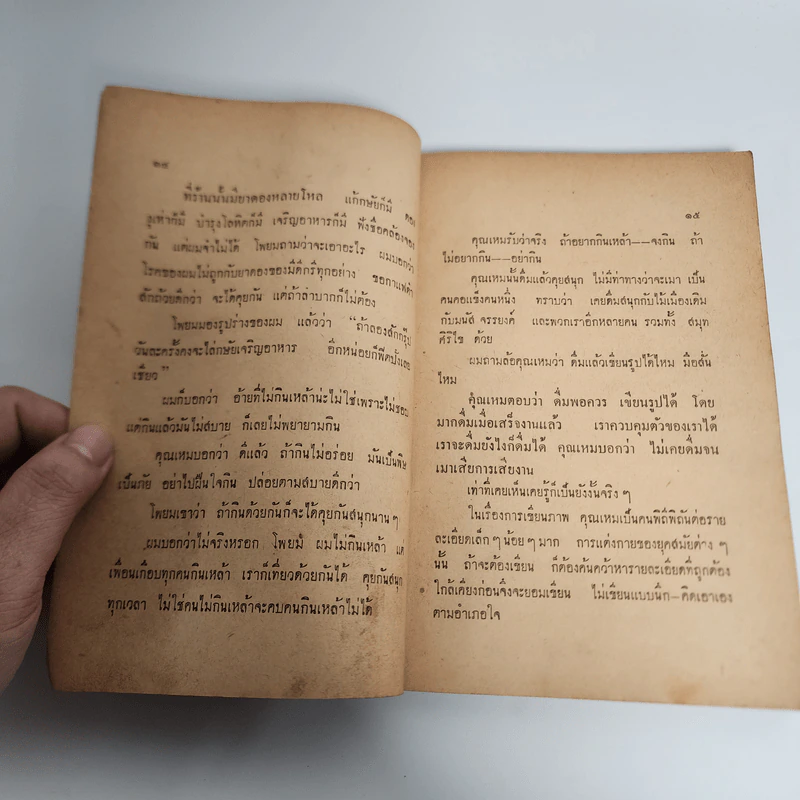 ๑๔
ที่ร้านนั้นมียาดองหลายโหล แก้กษัยก็มี ดอง
งูเห่าก็มี บำรุงโลหิตก็มี เจริญอาหารก็มี ฟังชื่อคล้องจอง
กัน แต่ผมจำไม่ได้ โพยมถามว่าจะเอาอะไร ผมบอกว่า
โรคของผมไม่ถูกกับยาดองของมีดีกรีทุกอย่าง ขอกาแฟดำ
สักถ้วยดีกว่า จะได้คุยกัน แต่ถ้าลำบากก็ไม่ต้อง
โพยมมองรูปร่างของผม แล้วว่า “ถ้าลองสักกรุ๊ป
วันละครั้งคงจะไล่กษัยเจริญอาหาร อีกหน่อยก็พีคปั๋งเลย
เชียว”
ผมก็บอกว่า อ้ายที่ไม่กินเหล้าน่ะไม่ใช่เพราะไม่ชอบ
แต่กินแล้วมันไม่สบาย ก็เลยไม่พยายามกิน
คุณเหมบอกว่า ดีแล้ว ถ้ากินไม่อร่อย มันเป็นพิษ
เป็นภัย อย่าไปฝืนใจกิน ปล่อยตามสบายดีกว่า
โพยมเขาว่า ถ้ากินด้วยกันก็จะได้คุยกันสนุกนานๆ
ผมบอกว่าไม่จริงหรอก โพยม ผมไม่กินเหล้า แต่
เพื่อนเกือบทุกคนกินเหล้า เราก็เที่ยวด้วยกันได้ คุยกันสนุก
ทุกเวลา ไม่ใช่คนไม่กินเหล้าจะคบคนกินเหล้าไม่ได้
๑๕
คุณเหมรับว่าจริง ถ้าอยากกินเหล้า--จงกิน ถ้า
ไม่อยากกิน--อย่ากิน
คุณเหมนั้นดื่มแล้วคุยสนุก ไม่มีท่าทางว่าจะเมา เป็น
คนคอแข็งคนหนึ่ง ทราบว่า เคยดื่มสนุกกับไม้เมืองเดิม
กับมนัส จรรยงค์ และพวกเราอีกหลายคน รวมทั้ง สมุท
ศิริไข ด้วย
ผมถามล้อคุณเหมว่า ดื่มแล้วเขียนรูปได้ไหม มือสั่น
ไหม
คุณเหมตอบว่า ดื่มพอควร เขียนรูปได้ โดย
มากดื่มเมื่อเสร็จงานแล้ว เราควบคุมตัวของเราได้
เราจะดื่มยังไงก็ดื่มได้ คุณเหมบอกว่า ไม่เคยดื่มจน
เมาเสียการเสียงาน
เท่าที่เคยเห็นเคยรู้ก็เป็นยังงั้นจริงๆ
ในเรื่องการเขียนภาพ คุณเหมเป็นคนพิถีพิถันต่อราย
ละเอียดเล็กๆ น้อยๆ มาก การแต่งกายของยุคสมัยต่างๆ
นั้น ถ้าจะต้องเขียน ก็ต้องค้นคว้าหารายละเอียดที่ถูกต้อง
ใกล้เคียงก่อนจึงจะยอมเขียน ไม่เขียนแบบนึก-คิดเอาเอง
ตามอำเภอใจ